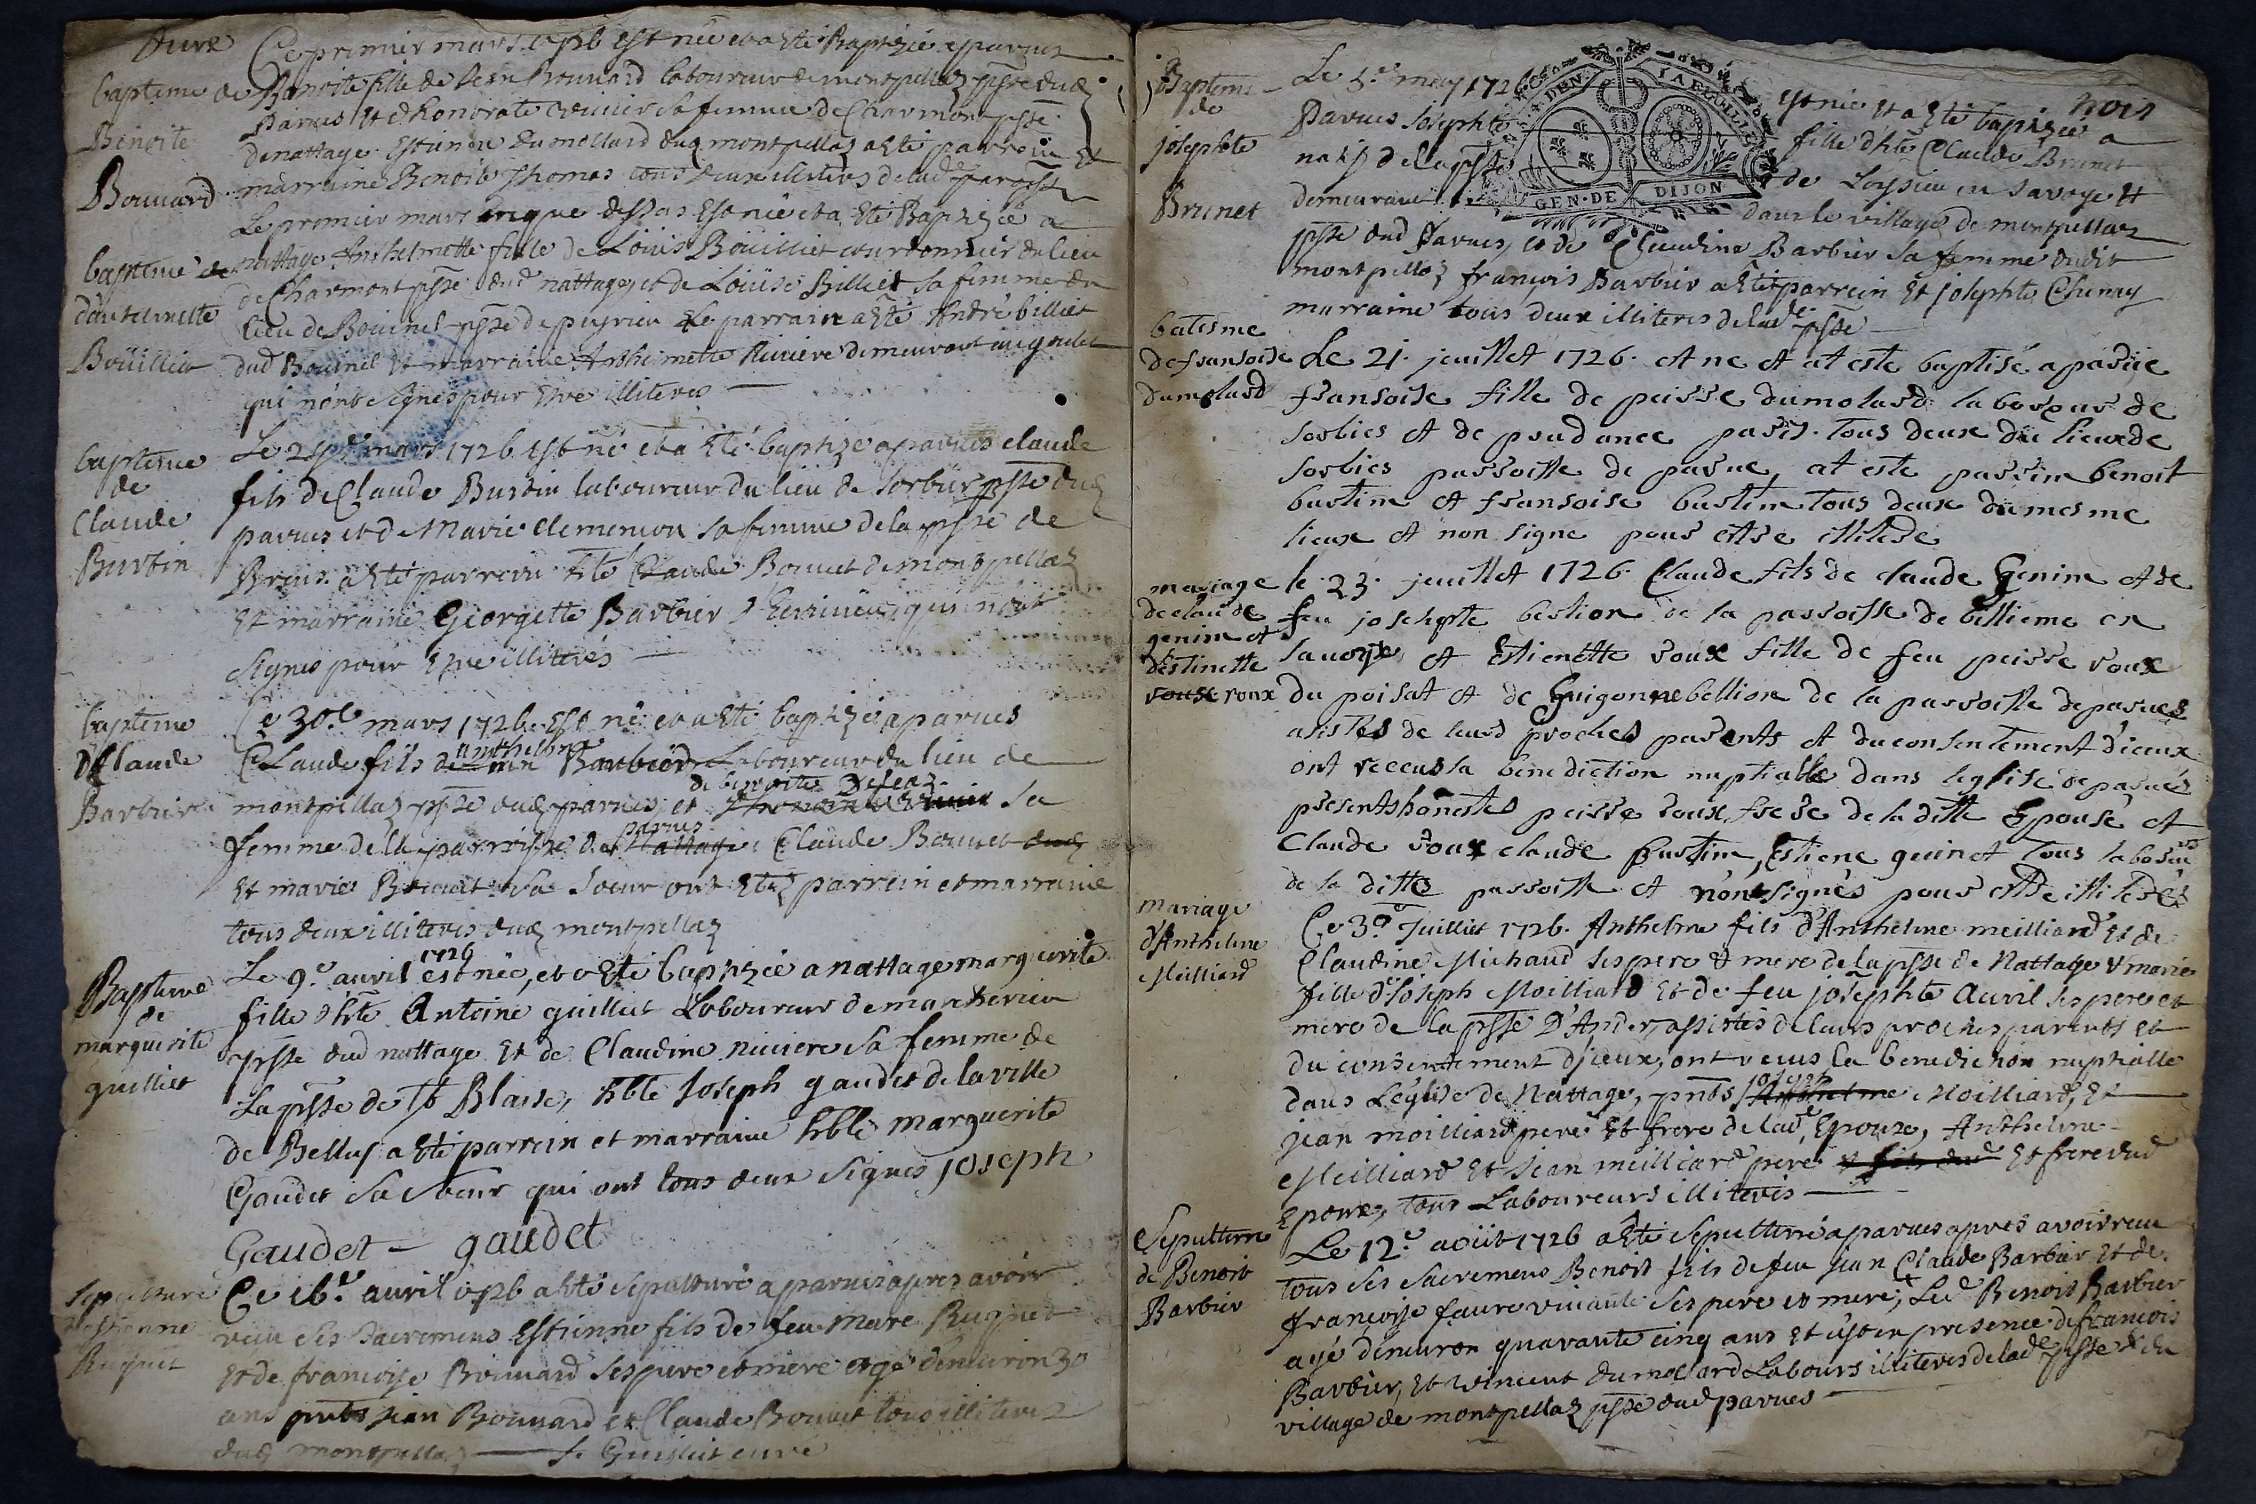 Ce premier mars 1726 est née et a esté Baptizée a parves
bapteme de
Benoite
Bonnard
Benoite fille de Jean Bonnard laboureur de montpellaz psse dud
Parves et d'honorate sa femme de Charmont psse
de nattage Estienne dumollard dud montpellaz a esté parrein Et
marraine Benoite Thomas tous deux illiteres de lad parroisse
baptême
d'anthelmette
Boüilliet
Le premier mars est née et a Eté Baptizée a
nattage Anthelmette fille de Loüis Boüilliet courdonnier du lieu
de Charmont psse dud nattage et de Loüise Billiet sa femme du
lieu de Bouinel psse de peyrieu Le parrain a esté André billiet
dud Bouinel Et marraine Anthelmette Riviere demeurant au goulet
qui n'ont signés pour Etre illiteres
baptême
de
Claude
Burtin
Le mars 1726 est né et a Eté baptizé a parves claude
fils de Claude Burtin laboureur du lieu de Sorbier psse dud
parves et de Marie clemencon sa femme de la psse de
Brens a esté parrein hte Claude Bonnet de montpellaz
Et marraine Georgette Barbier qui n'ont
signés pour Etre illiterés
baptême
d'Claude
Barbier
Ce 30e mars 1726 est né et a esté baptizé a parves
anthelme
Claude fils de Barbier Laboureur du lieu de
de benoite Defeaz
montpellaz psse dud parves et sa
parves
femme de la parroisse de nattage Claude Bonnet dud
Et marie Bonnet sa soeur ont Etéz parrein et marraine
tous deux illiteres dud montpellaz
Baptême
de
marguerite
guilliet
1726
Le 9e. auril est née, et a Eté baptizée a nattage marguerite
fille d'hte Antoine guilliet Laboureur de marcherieu
psse dud nattage Et de Claudine riviere sa femme de
La psse de St Blaise, hble Joseph gaudet de la ville
de Belley a Eté parrein et marraine hble marguerite
Gaudet sa soeur qui ont tous deux signés joseph
Gaudet - gaudet
Sepulture
d'estienne
Rugnet
Ce 16e. auril 1726 a Eté sepulturé a parves apres avoir
reçu ses sacremens Estienne fils de feu Marc Rugnet
et de francoise Bonnard ses pere et mere agé d'enuiron 30
ans pnts jean Bonnard et Claude Bonnet tous illiteres
dud montpellaz — Guilliet curé
nois
GEN·DE DIJON
Baptême
de
josephte
Brunet
Le 5e. may 1726 est née et a Eté baptizée a
Parves Josephte fille d'hte Claude Brunet
natif de la psse de Loysieu en Savoye Et
demeurant dans le village de montpellaz
psse dud Parves, et de Claudine Barbier sa femme dudit
montpellaz françois Barbier a Eté parrein Et josephte Chenay
marraine tous deux illiteres de lade psse
batesme
de fransoise
dumolard
Le 21. jeuillet 1726. et ne et at este baptisé a parve
fransoise fille de peirre dumolard laboreur de
sorbies et de prudance paris. tous deux du lieux de
sorbies parroisse de parve, at este parrin benoit
burtin et fransoise burtin tous deux du mesme
lieux et non signe pour estre illitere
mariage
de claude
genin et
destinette
rouse roux
le 23. jeuillet 1726. Claude fils de claude Genin et de
feu josephte bestion de la parroisse de billieme en
sauoye, et Estienette roux fille de feu peirre roux
du poisat et de Guigonne bellion de la parroisse de parves
asistes de leurs proches parents et du consentement d'ieux
ont reccus la bénédiction nuptialle dans leglise de parves
presents honestes peirre roux, frere de la ditte Epousé et
Claude roux claude Burtin, Estiene guinet tous laboreurs
de la ditte parroisse et n'ont signés pour estre illiterés
mariage
d'Anthelme
Meilliard
Ce 30e Juillet 1726. Anthelme fils d'Anthelme meilliard Et de
Claudine Michaud ses pere & mere de la psse de Nattage & marie
fille d'Joseph Moilliard Et de feu josephte auril ses pere et
mere de la psse D'Ander, assistés de leurs proches parents Et
du consentement d'jceux, ont reçus la benediction nuptialle
joseph
dans L'église de Nattage, pnts Anthelme Moilliard, Et
jean moilliard pere Et frere de lade Epouze, Anthelme
Meilliard Et Jean meilliard pere & fils dud Et frere dud
Epoux, tous Laboureurs illiteris
Sepulture
de Benoit
Barbier
Le 12e. aoüst 1726 a Eté sepulturé a parves apres avoir reçu
tous ses sacremens Benoit fils de feu jean Claude Barbier Et de
françoise faure viuante ses pere et mere, Led Benoit Barbier
agé d'enuiron quarante cinq ans Et c'est en presence de francois
Barbier, Et vincent dumolard Labours illiteres de lade psse & du
village de montpellaz psse dud parves